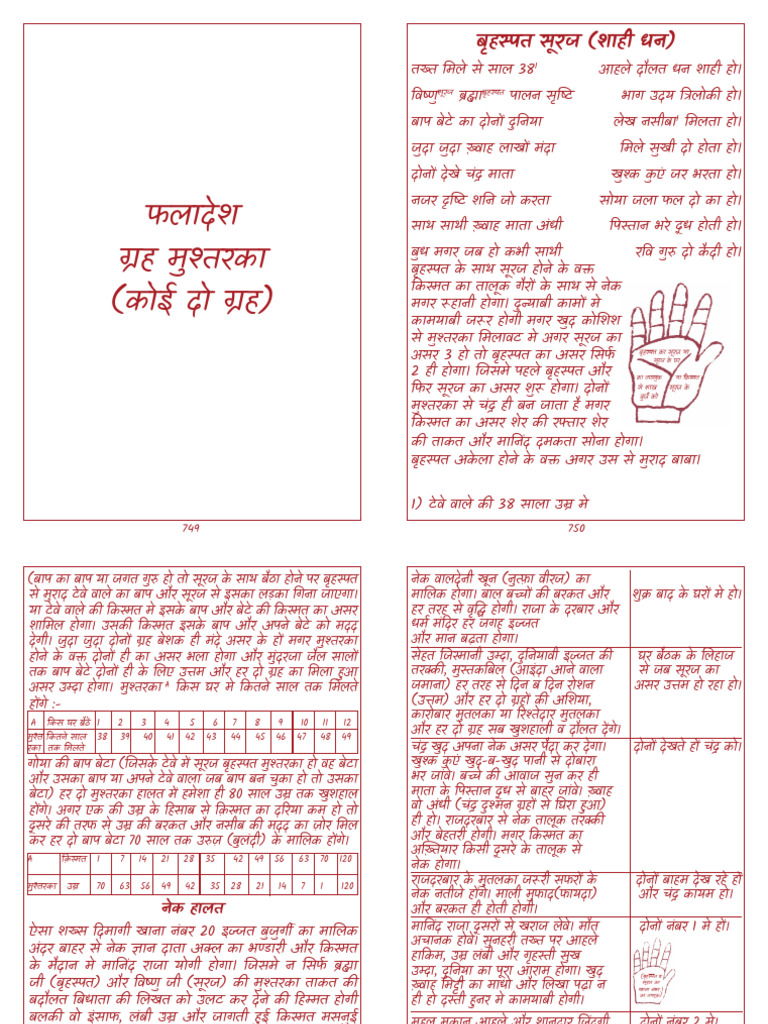 फलादेश
ग्रह मुश्तरका
(कोई दो ग्रह)
749
बृहस्पत सूरज (शाही धन)
तख्त मिले से साल 38¹ आहले दौलत धन शाही हो।
विष्णु सूरज ब्रह्मा बृहस्पत पालन सृष्टि भाग उदय त्रिलोकी हो।
बाप बेटे का दोनों दुनिया लेख नसीबा¹ मिलता हो।
जुदा जुदा ख़्वाह लाखों मंदा मिले सुखी दो होता हो।
दोनों देखे चंद्र माता खुश्क कुएं जर भरता हो।
नजर दृष्टि शनि जो करता सोया जला फल दो का हो।
साथ साथी ख़्वाह माता अंधी पिस्तान भरे दूध होती हो।
बुध मगर जब हो कभी साथी रवि गुरु दो कैदी हो।
बृहस्पत के साथ सूरज होने के वक्त
किस्मत का तालूक गैरों के साथ से नेक
मगर रुहानी होगा। दुन्याबी कामों मे
कामयाबी जरूर होगी मगर खुद कोशिश
से मुश्तरका मिलावट मे अगर सूरज का
असर 3 हो तो बृहस्पत का असर सिर्फ
2 ही होगा। जिसमे पहले बृहस्पत और
फिर सूरज का असर शुरू होगा। दोनों
मुश्तरका से चंद्र ही बन जाता है मगर
किस्मत का असर शेर की रफ्तार शेर
की ताकत और मानिंद दमकता सोना होगा।
बृहस्पत अकेला होने के वक्त अगर उस से मुराद बाबा।
बृहस्पत का सूरज पर
सूरज के घर
1) टेवे वाले की 38 साला उम्र मे
750
(बाप का बाप या जगत गुरु हो तो सूरज के साथ बैठा होने पर बृहस्पत
से मुराद टेवे वाले का बाप और सूरज से इसका लड़का गिना जाएगा।
या टेवे वाले की किस्मत मे इसके बाप और बेटे की किस्मत का असर
शामिल होगा। उसकी किस्मत इसके बाप और अपने बेटे को मदद
देगी। जुदा जुदा दोनों ग्रह बेशक ही मंदे असर के हो मगर मुश्तरका
होने के वक्त दोनों ही का असर भला होगा और मुंदरजा जैल सालों
तक बाप बेटे दोनों ही के लिए उत्तम और हर दो ग्रह का मिला हुआ
असर उम्दा होगा। मुश्तरका A किस घर मे कितने साल तक मिलते
होंगे :-
A किस घर बैठे 1 2 3 4 5 6 7 8 9 10 11 12
मुश्त कितने साल 38 39 40 41 42 43 44 45 46 47 48 49
रका तक मिलते
गोया की बाप बेटा (जिसके टेवे में सूरज बृहस्पत मुश्तरका हो वह बेटा
और उसका बाप या अपने टेवे वाला जब बाप बन चुका हो तो उसका
बेटा) हर दो मुश्तरका हालत में हमेशा ही 80 साल उम्र तक खुशहाल
होंगे। अगर एक की उम्र के हिसाब से क़िस्मत का दरिया कम हो तो
दूसरे की तरफ से उम्र की बरकत और नसीब की मदद का जोर मिल
कर हर दो बाप बेटा 70 साल तक उरूज़ (बुलंदी) के मालिक होंगे।
A क़िस्मत 1 7 14 21 28 35 42 49 56 63 70 120
मुश्तरका उम्र 70 63 56 49 42 35 28 21 14 7 1 120
नेक हालत
ऐसा शख्स दिमागी खाना नंबर 20 इज्जत बुजुर्गी का मालिक
अंदर बाहर से नेक ज्ञान दाता अक्ल का भण्डारी और किस्मत
के मैदान मे मानिंद राजा योगी होगा। जिसमे न सिर्फ ब्रह्मा
जी (बृहस्पत) और विष्णु जी (सूरज) की मुश्तरका ताकत की
बदौलत बिधाता की लिखत को उलट कर देने की हिम्मत होगी
बलकी वो इंसाफ, लंबी उम्र और जागती हुई किस्मत मसनुई
नेक वालदेनी खून (नुत्फ़ा वीरज) का
मालिक होगा। बाल बच्चों की बरकत और
हर तरह से वृद्धि होगी। राजा के दरबार और
धर्म मंदिर हर जगह इज्जत
और मान बढ़ता होगा।
शुक्र बाद के घरों मे हो।
सेहत जिस्मानी उम्दा, दुनियावी इज्जत की
तरक्की, मुस्तकबिल (आइंदा आने वाला
जमाना) हर तरह से दिन ब दिन रोशन
(उत्तम) और हर दो ग्रहों की अशिया,
कारोबार मुतलका या रिश्तेदार मुतलका
और हर दो ग्रह सब खुशहाली व दौलत देंगे।
घर बैठक के लिहाज
से जब सूरज का
असर उत्तम हो रहा हो।
चंद्र खुद अपना नेक असर पैदा कर देगा।
खुश्क कुएं खुद-ब-खुद पानी से दोबारा
भर जांवे। बच्चे की आवाज सुन कर ही
माता के पिस्तान दूध से बाहर जांवे। ख़्वाह
वो अंधी (चंद्र दुश्मन ग्रहों से घिरा हुआ)
ही हो। राजदरबार से नेक ताल्लुक तरक्की
और बेहतरी होगी। मगर किस्मत का
अख़्तियार किसी दूसरे के तालूक से
नेक होगा।
दोनों देखते हों चंद्र को।
राजदरबार के मुतलका जरूरी सफरों के
नेक नतीजे होंगे। माली मुफाद(फायदा)
और बरकत ही होती होगी।
दोनों बाहम देख रहे हों
और चंद्र कायम हो।
मानिंद राजा दूसरों से खराज लेवे। मौत
अचानक होवे। सुनहरी तख्त पर आहले
हाकिम, उम्र लंबी और गृहस्ती सुख
उम्दा, दुनिया का पूरा आराम होगा। खुद
ख्वाह मिट्टी का माधो और लिखा पढ़ा न
ही हो दस्ती हुनर मे कामयाबी होगी।
दोनों नंबर 1 मे हों।
महल मकान आहले और शानदार जिंदगी
दोनों नंबर 2 मे।